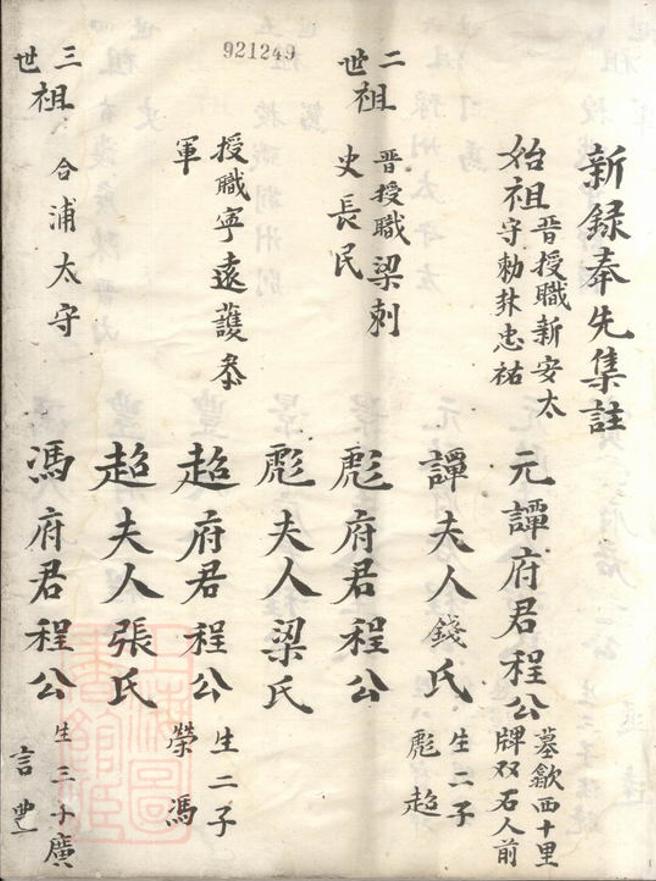 921249
新録奉先集註
始祖
晋授職新安太
守勅封忠祐
元譚府君程公
墓歙西十里
牌双石人前
譚夫人錢氏
生二子
彪超
二世祖
晋授職梁刺
史長民
彪府君程公
彪夫人梁氏
授職寧遠護叅
軍
超府君程公
生二子
榮馮
超夫人張氏
三世祖
合浦太守
馮府君程公
生三子廣
言